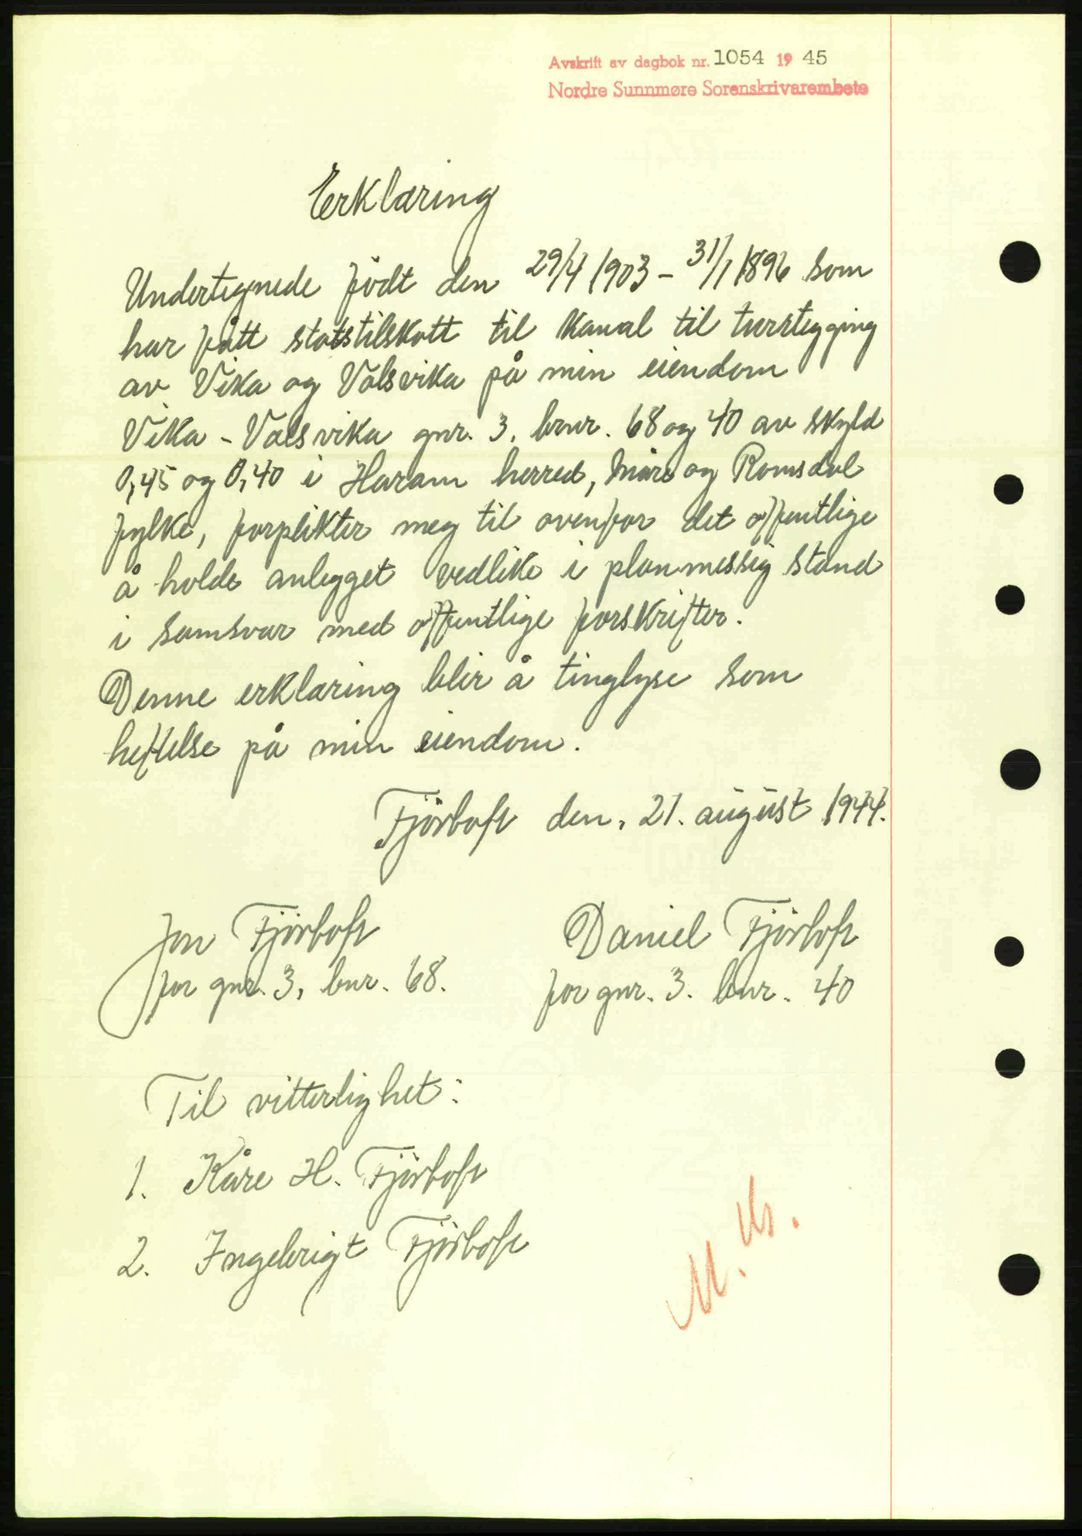 Avskrift av dagbok nr. 1054 19 45
Nordre Sunnmøre Sorenskrivarembete
Erklæring
Undertegnede födt den 29/4 1903 - 31/1 1896 som
har fått statstilskott til kanal til tørrlegging
av Vika og Valsvika på min eiendom
Vika - Valsvika gnr. 3, brnr. 68 og 40 av skyld
0,45 og 0,40 i Haram herred, Møre og Romsdal
fylke, forplikter meg til ovenfor det offentlige
å holde anlegget vedlike i planmessig stand
i samsvar med offentlige forskrifter.
Denne erklæring blir å tinglyse som
heftelse på min eiendom.
Fjörtoft den, 21. august 1944.
Jon Fjörtoft
Daniel Fjörtoft
for gnr. 3, bnr. 68.
for gnr. 3. bnr. 40
Til vitterlighet:
1. Kåre H. Fjörtoft
2. Ingebrigt Fjörtoft